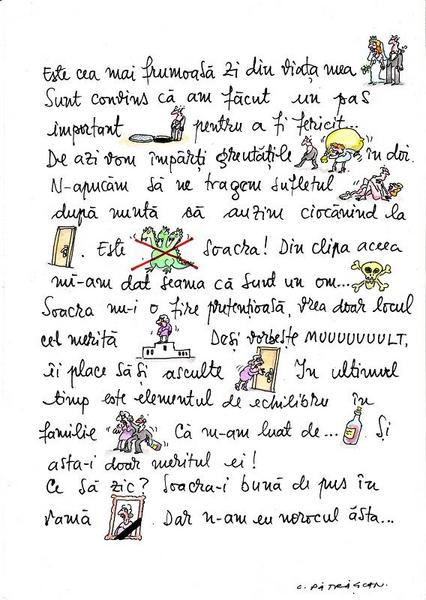 Este cea mai frumoasă zi din viața mea
Sunt convins că am făcut un pas
important pentru a fi fericit...
De azi vom împărți greutățile în doi.
N-apucăm să ne tragem sufletul
după nuntă să auzim ciocănind la
. Este Soacra! Din clipa aceea
mi-am dat seama că sunt un om...
Soacra nu-i o fire pretențioasă, vrea doar locul
cel merită Deși vorbește MUUUUUUULT,
îi place să și asculte In ultimul
timp este elementul de echilibru în
familie Că m-am luat de... Și
asta-i doar meritul ei!
Ce să zic? Soacra-i bună de pus în
ramă . Dar n-am eu norocul ăsta...
C. PĂTRĂȘCAN.